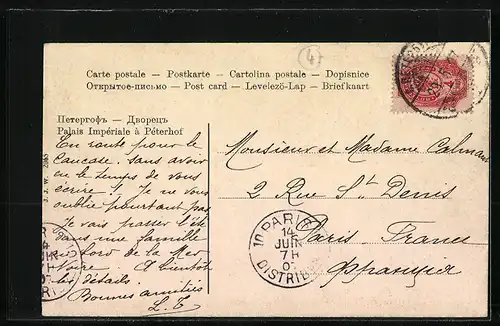 4
Carte postale — Postkarte — Cartolina postale — Dopisnice
Открытое-письмо — Post card — Levelező-Lap — Briefkaart
Петергофъ — Дворецъ
Palais Impériale à Péterhof
En route pour le
Caucase. Sans avoir
eu le temps de vous
écrire ! Je ne vous
oublie pourtant pas
Je vais passer l'été
dans une famille
au bord de la Mer
Noire. A bientôt
les détails.
Bonnes amitiés
L. T.
J. J. W.
Monsieur et Madame Calmann
2 Rue St Denis
Paris France
Франція
10 PARIS
14
JUIN
7 H
DISTRIB